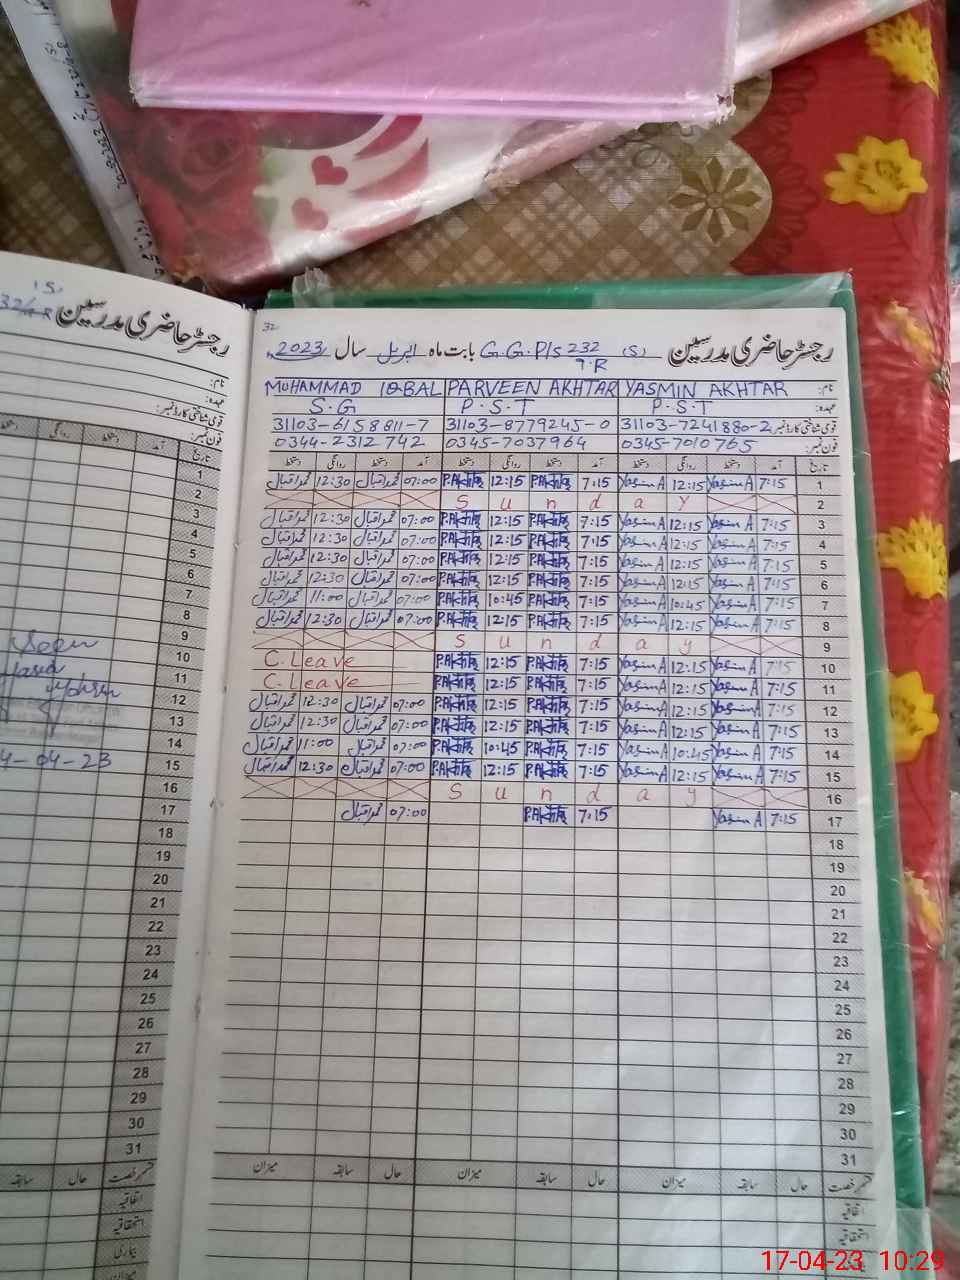 32
رجسٹر حاضری مدرسین (S) G.G.P/S 232/7.R بابت ماہ اپریل سال 2023
نام: YASMIN AKHTAR PARVEEN AKHTAR MUHAMMAD IQBAL
عہدہ: P.S.T P.S.T S.G
قومی شناختی کارڈ نمبر: 31103-7241880-2 31103-8779245-0 31103-6158811-7
فون نمبر: 0345-7010765 0345-7037964 0344-2312742
تاریخ آمد دستخط روانگی دستخط آمد دستخط روانگی دستخط آمد دستخط روانگی دستخط
1 7:15 Yasmin A 12:15 Yasmin A 7:15 P.Akhtar 12:15 P.Akhtar 07:00 محمد اقبال 12:30 محمد اقبال
2 Sunday
3 7:15 Yasmin A 12:15 Yasmin A 7:15 P.Akhtar 12:15 P.Akhtar 07:00 محمد اقبال 12:30 محمد اقبال
4 7:15 Yasmin A 12:15 Yasmin A 7:15 P.Akhtar 12:15 P.Akhtar 07:00 محمد اقبال 12:30 محمد اقبال
5 7:15 Yasmin A 12:15 Yasmin A 7:15 P.Akhtar 12:15 P.Akhtar 07:00 محمد اقبال 12:30 محمد اقبال
6 7:15 Yasmin A 12:15 Yasmin A 7:15 P.Akhtar 12:15 P.Akhtar 07:00 محمد اقبال 12:30 محمد اقبال
7 7:15 Yasmin A 10:45 Yasmin A 7:15 P.Akhtar 10:45 P.Akhtar 07:00 محمد اقبال 11:00 محمد اقبال
8 7:15 Yasmin A 12:15 Yasmin A 7:15 P.Akhtar 12:15 P.Akhtar 07:00 محمد اقبال 12:30 محمد اقبال
9 Sunday
10 7:15 Yasmin A 12:15 Yasmin A 7:15 P.Akhtar 12:15 P.Akhtar C.Leave
11 7:15 Yasmin A 12:15 Yasmin A 7:15 P.Akhtar 12:15 P.Akhtar C.Leave
12 7:15 Yasmin A 12:15 Yasmin A 7:15 P.Akhtar 12:15 P.Akhtar 07:00 محمد اقبال 12:30 محمد اقبال
13 7:15 Yasmin A 12:15 Yasmin A 7:15 P.Akhtar 12:15 P.Akhtar 07:00 محمد اقبال 12:30 محمد اقبال
14 7:15 Yasmin A 10:45 Yasmin A 7:15 P.Akhtar 10:45 P.Akhtar 07:00 محمد اقبال 11:00 محمد اقبال
15 7:15 Yasmin A 12:15 Yasmin A 7:15 P.Akhtar 12:15 P.Akhtar 07:00 محمد اقبال 12:30 محمد اقبال
16 Sunday
17 7:15 Yasmin A 7:15 P.Akhtar 07:00 محمد اقبال
18
19
20
21
22
23
24
25
26
27
28
29
30
31
رخصت حال سابقہ میزان حال سابقہ میزان حال سابقہ میزان
اتفاقیہ
استحقاقیہ
بیماری
میزان
(S)
رجسٹر حاضری مدرسین
نام:
عہدہ:
قومی شناختی کارڈ نمبر:
فون نمبر:
تاریخ آمد دستخط روانگی دستخط
1
2
3
4
5
6
7
8
9
10
11
12
13
14
15
16
17
18
19
20
21
22
23
24
25
26
27
28
29
30
31
Seen
04-23
رخصت حال سابقہ
اتفاقیہ
استحقاقیہ
بیماری
میزان
17-04-23 10:29